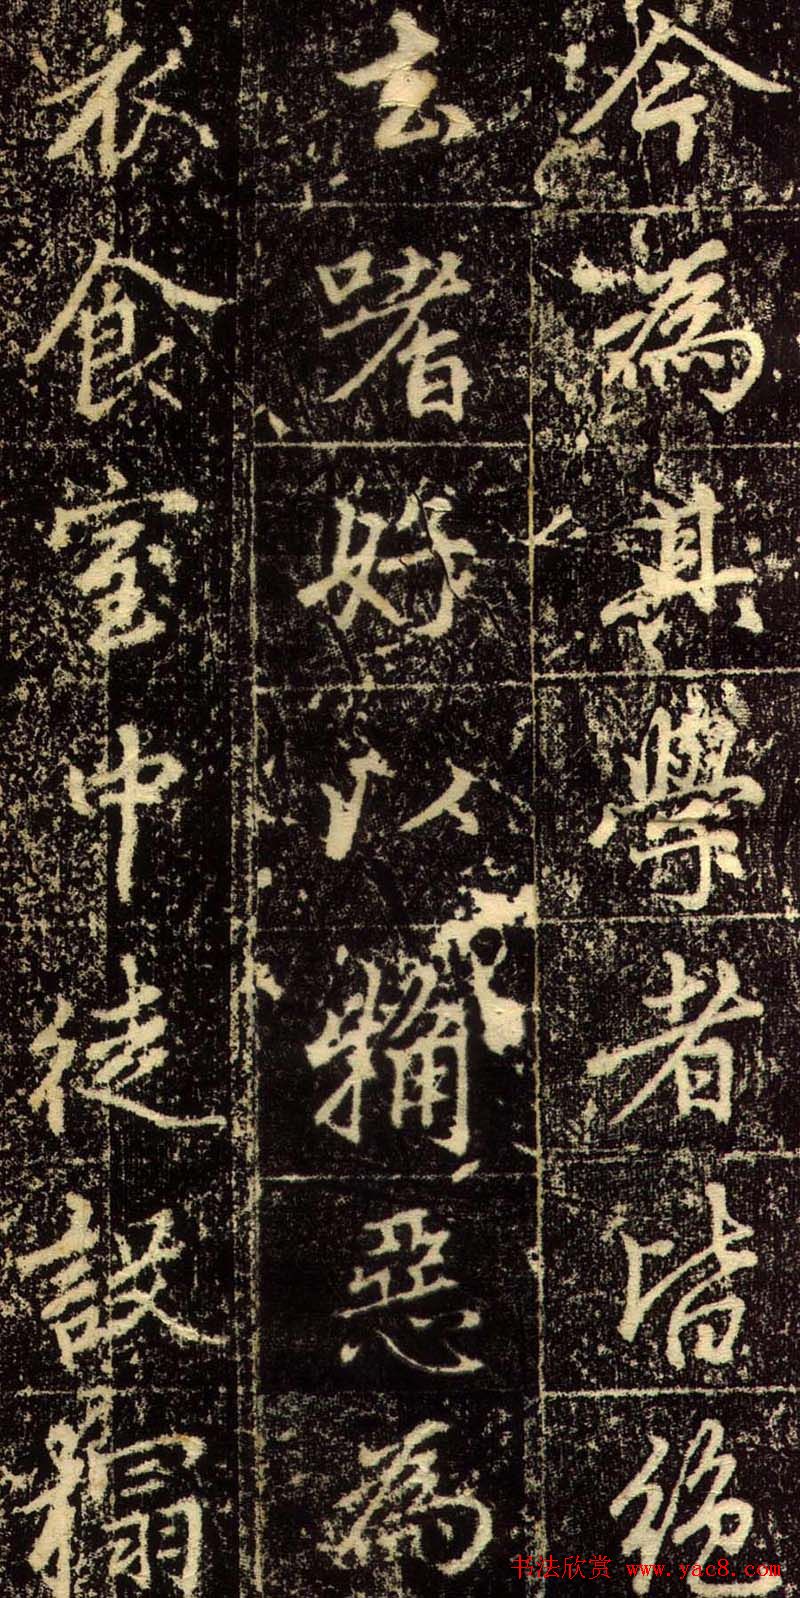 今為其學者皆絕
去嗜好以觕惡為
衣食室中徒設榻
书法欣赏 www.yac8.com